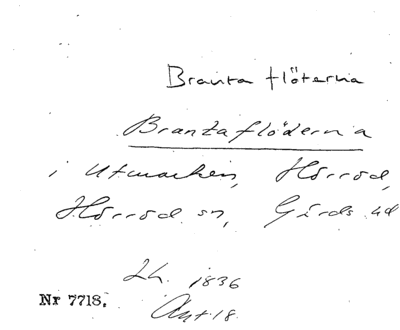 Branta flöterna
Brantaflöderna
i Utmarken, Hörröd,
Hörröd sn, Gärds hd
Lh. 1836
Nr 7718.
Akt 18.